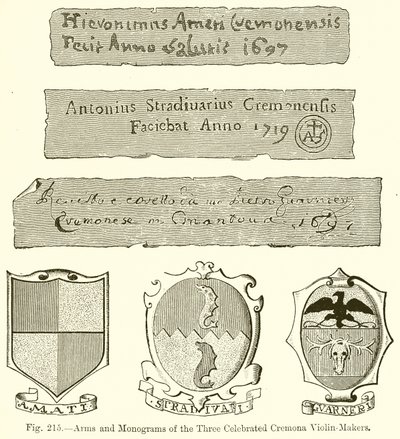 Hieronimus Amati Cremonensis
Fecit Anno Salutis 1697
Antonius Stradivarius Cremonensis
Faciebat Anno 1719 AS
da me Pietro Guarnieri
Cremonese in Mantoua 169
AMATI
STRADIVARI
GUARNERI
Fig. 215.—Arms and Monograms of the Three Celebrated Cremona Violin-Makers.